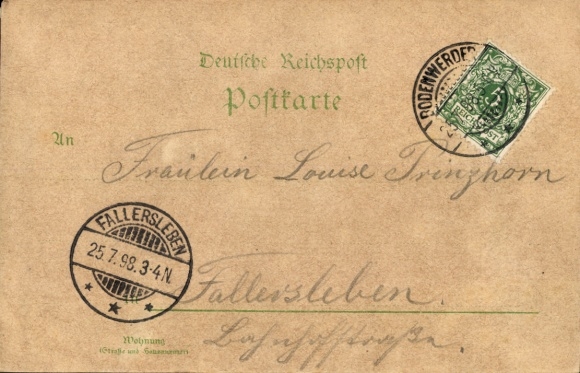 Deutsche Reichspost
Postkarte
BODENWERDER
An
Fräulein Louise Prinzhorn
FALLERSLEBEN
25.7.98.3-4N.
in
Fallersleben.
Bahnhofstraße.
Wohnung
(Straße und Hausnummer)